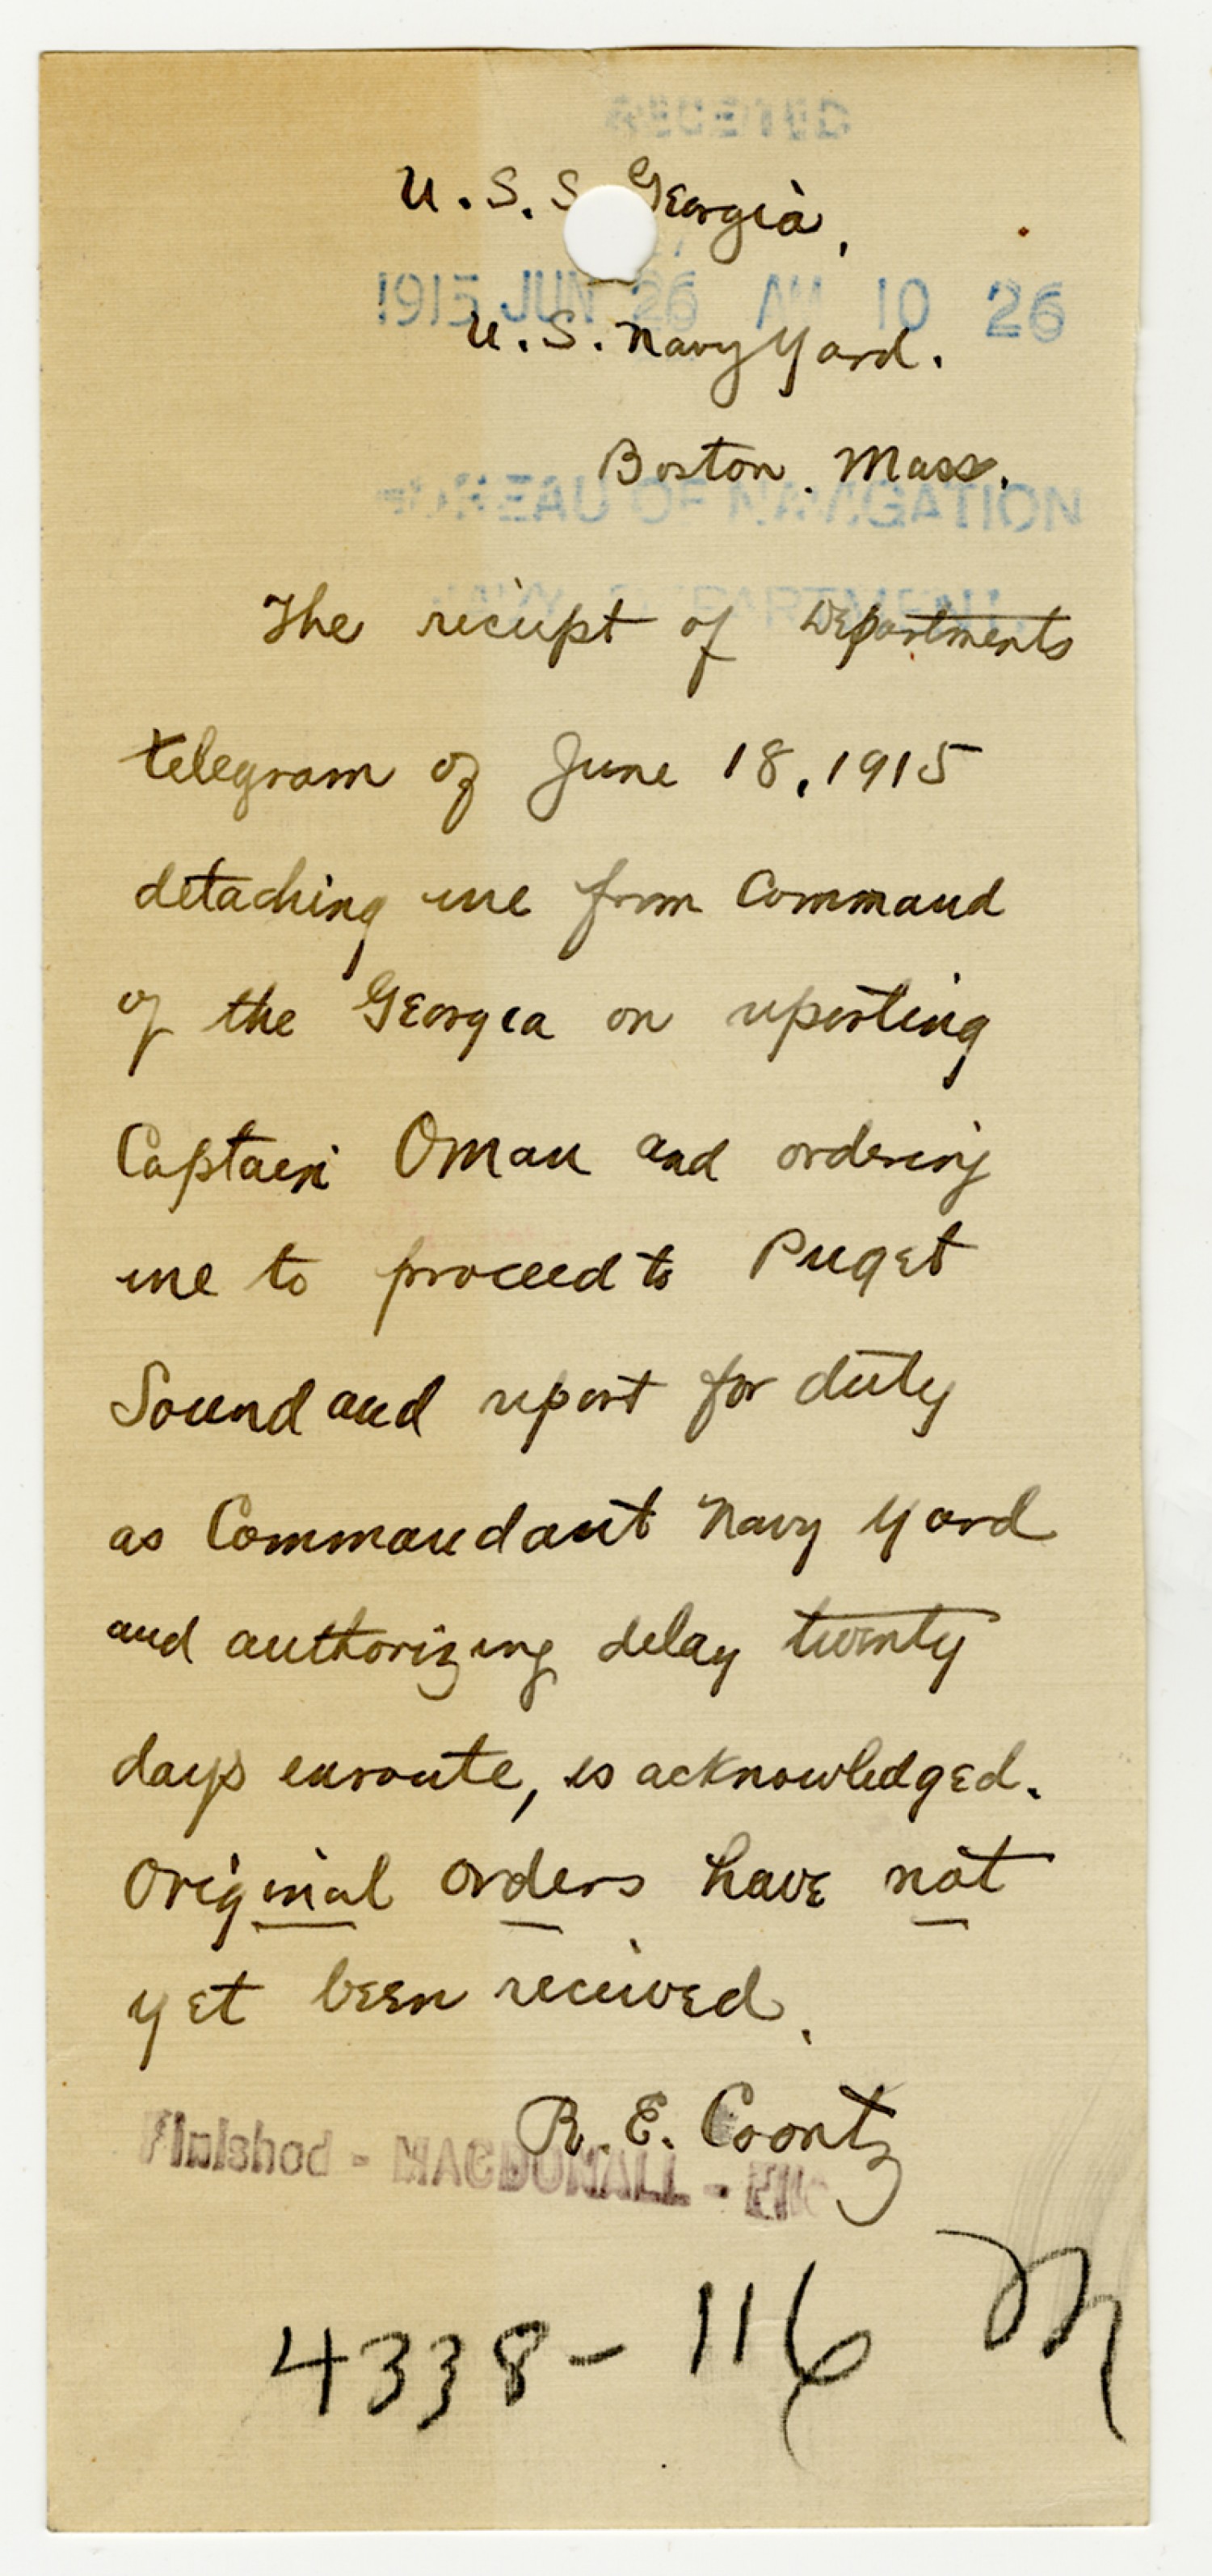 RECEIVED
U.S.S. Georgia,
1915 JUN 26 AM 10 26
U.S. Navy Yard.
Boston. Mass.
BUREAU OF NAVIGATION
NAVY DEPARTMENT.
The reciept of Departments
telegram of June 18, 1915
detaching me from Command
of the Georgia on reporting
Captain Oman and ordering
me to proceed to Puget
Sound and report for duty
as Commandant Navy Yard
and authorizing delay twenty
days enroute, is acknowledged.
Original orders have not
yet been received.
R. E. Coontz
Finished - MACDONALL -
4338-116 M